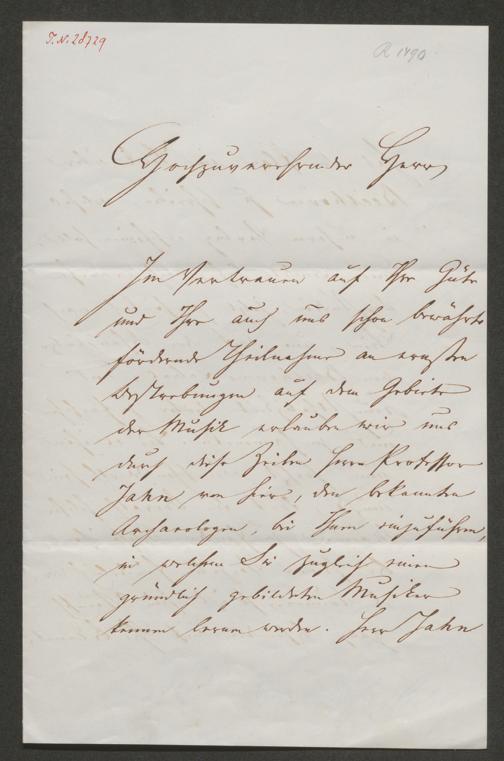 I.N. 28729
R 1890
Hochzuverehrender Herr,
Im Vertrauen auf Ihre Güte
und Ihre auch uns schon bewährte
fördernde Theilnahme an ernsten
Bestrebungen auf dem Gebiete
der Musik erlauben wir uns
durch diese Zeilen Herrn Professor
Jahn von hier, den bekannten
Archaeologen, bei Ihnen einzuführen,
in welchem Sie zugleich einen
gründlich gebildeten Musiker
kennen lernen werden. Herr Jahn